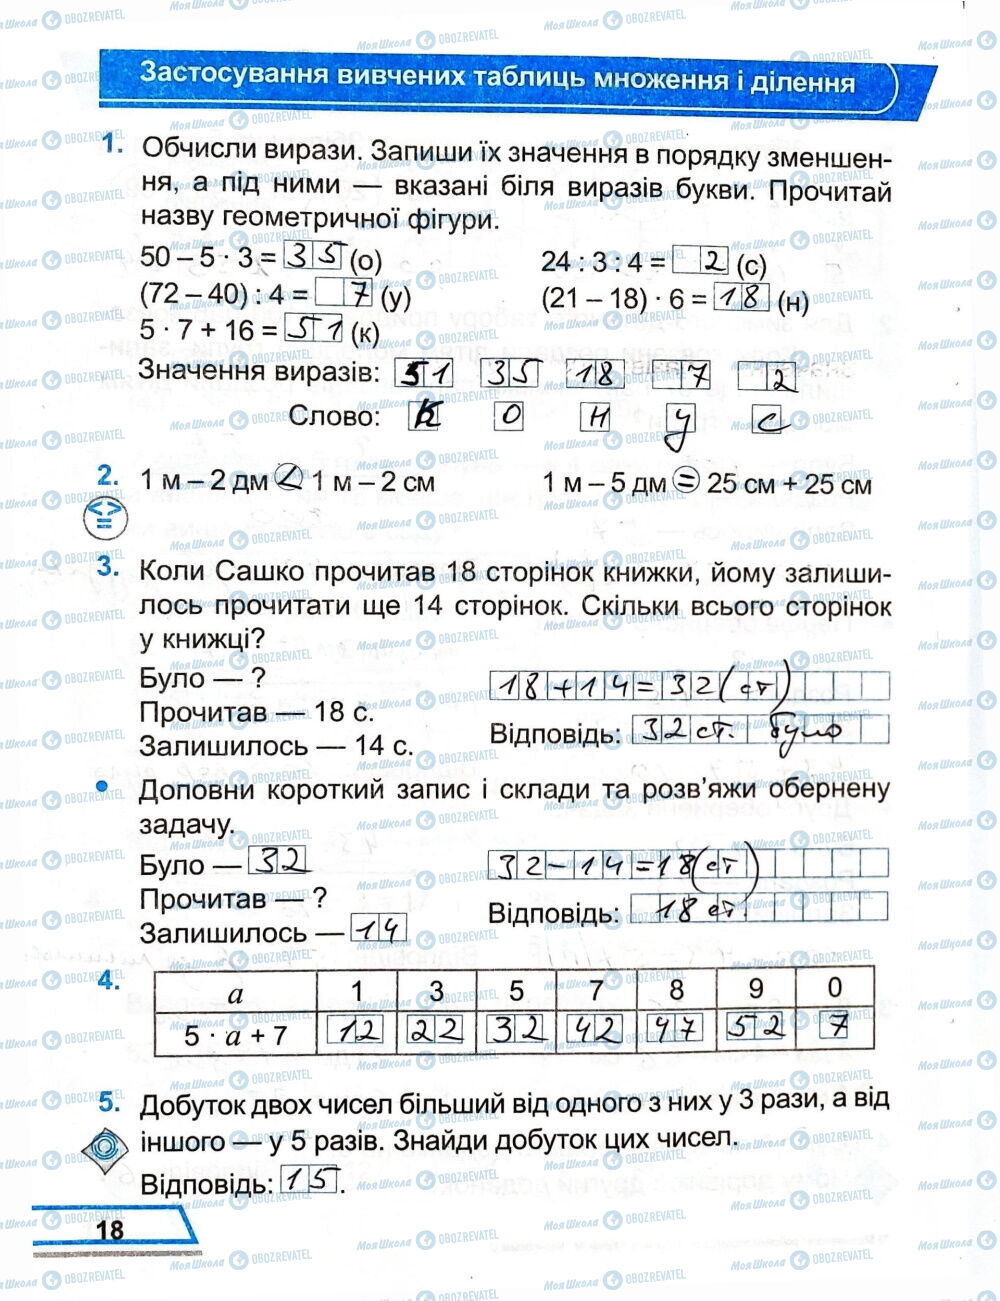 Застосування вивчених таблиць множення і ділення
1. Обчисли вирази. Запиши їх значення в порядку зменшен-
ня, а під ними — вказані біля виразів букви. Прочитай
назву геометричної фігури.
50 – 5 · 3 = 35 (о)
24 : 3 : 4 = 2 (с)
(72 – 40) : 4 = 7 (у)
(21 – 18) · 6 = 18 (н)
5 · 7 + 16 = 51 (к)
Значення виразів: 51 35 18 7 2
Слово: К О Н У С
2. 1 м – 2 дм < 1 м – 2 см
1 м – 5 дм = 25 см + 25 см
< > =
3. Коли Сашко прочитав 18 сторінок книжки, йому залиши-
лось прочитати ще 14 сторінок. Скільки всього сторінок
у книжці?
Було — ?
18+14=32(ст)
Прочитав — 18 с.
Відповідь: 32 ст. було
Залишилось — 14 с.
• Доповни короткий запис і склади та розв’яжи обернену
задачу.
Було — 32
32–14=18(ст)
Прочитав — ?
Відповідь: 18 ст.
Залишилось — 14
4. a 1 3 5 7 8 9 0
5 · a + 7 12 22 32 42 47 52 7
5. Добуток двох чисел більший від одного з них у 3 рази, а від
іншого — у 5 разів. Знайди добуток цих чисел.
Відповідь: 15.
18
МояШкола OBOZREVATEL